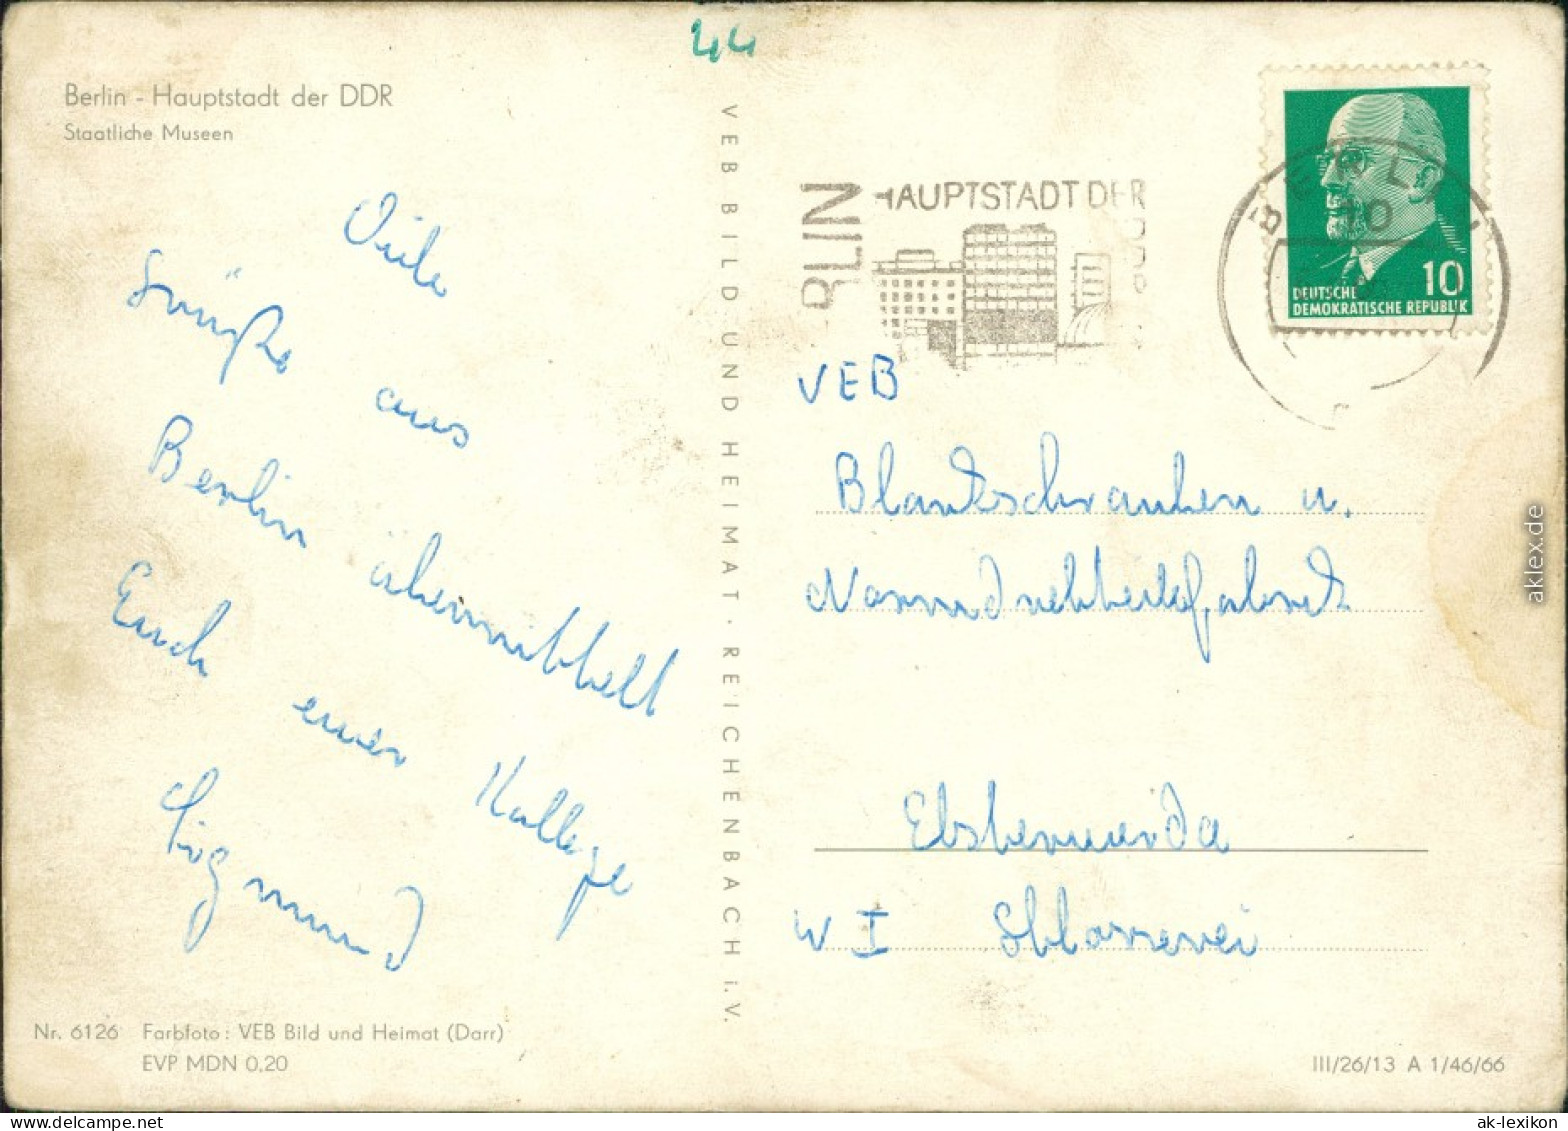 44
Berlin - Hauptstadt der DDR
Staatliche Museen
Viele
Grüße aus
Berlin übermittelt
Euch euer Kollege
Sigmund
VEB BILD UND HEIMAT · REICHENBACH i. V.
Nr. 6126 Farbfoto: VEB Bild und Heimat (Darr)
EVP MDN 0,20
RLIN
HAUPTSTADT DER
BERLIN
10
10
DEUTSCHE
DEMOKRATISCHE REPUBLIK
VEB
Blankschrauben u.
Elsterwerda
W I Schlosserei
III/26/13 A 1/46/66
aklex.de
ak-lexikon